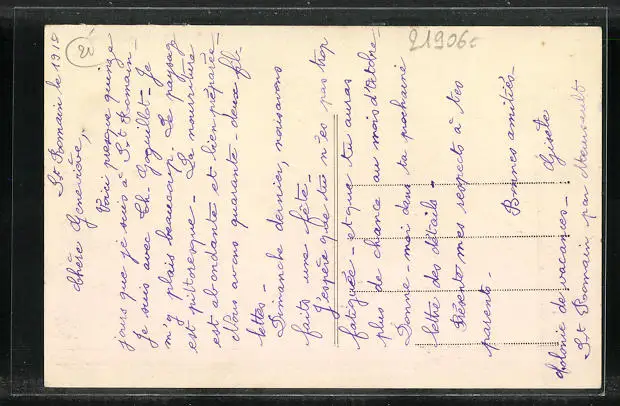 St Romain le 1918
Chère Geneviève,
Voici presque quinze
jours que je suis à St Romain-
Je suis avec Ch. Je
m'y plais beaucoup. Le paysage
est pittoresque- La nourriture
est abondante et bien préparée-
Nous avons quarante-deux fil-
lettes-
Dimanche dernier, nous avons
faits une fête-
J'espère que tu n'es pas trop
fatiguée- et que tu auras
plus de chance au mois d'Octobre-
Donne-moi dans ta prochaine
lettre des détails-
Présente mes respects à tes
parents-
Bonnes amitiés-
Gisèle
Colonie de vacances-
St Romain par Meursault
21906c